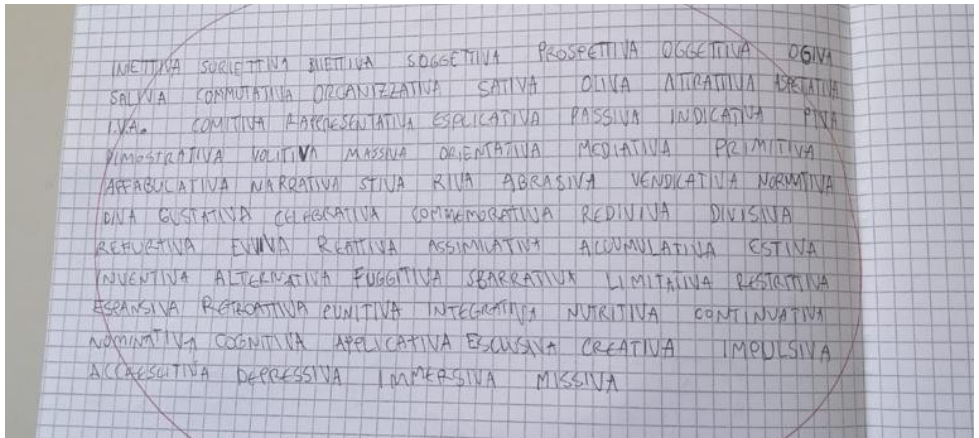 INIETTIVA SURIETTIVA BIIETTIVA SOGGETTIVA PROSPETTIVA OGGETTIVA OGIVA
SALIVA COMMUTATIVA ORGANIZZATIVA SATIVA OLIVA ATTRATTIVA ASPETTATIVA
I.V.A. COMITIVA RAPPRESENTATIVA ESPLICATIVA PASSIVA INDICATIVA PIVA
DIMOSTRATIVA VOLITIVA MASSIVA ORIENTATIVA MEDIATIVA PRIMITIVA
AFFABULATIVA NARRATIVA STIVA RIVA ABRASIVA VENDICATIVA NORMATIVA
DIVA GUSTATIVA CELEBRATIVA COMMEMORATIVA REDIVIVA DIVISIVA
REFURTIVA EVVIVA REATTIVA ASSIMILATIVA ACCUMULATIVA ESTIVA
INVENTIVA ALTERNATIVA FUGGITIVA SBARRATIVA LIMITATIVA RESTRITTIVA
ESPANSIVA RETROATTIVA PUNITIVA INTEGRATIVA NUTRITIVA CONTINUATIVA
NOMINATIVA COGNITIVA APPLICATIVA ESCLUSIVA CREATIVA IMPULSIVA
ACCRESCITIVA DEPRESSIVA IMMERSIVA MISSIVA